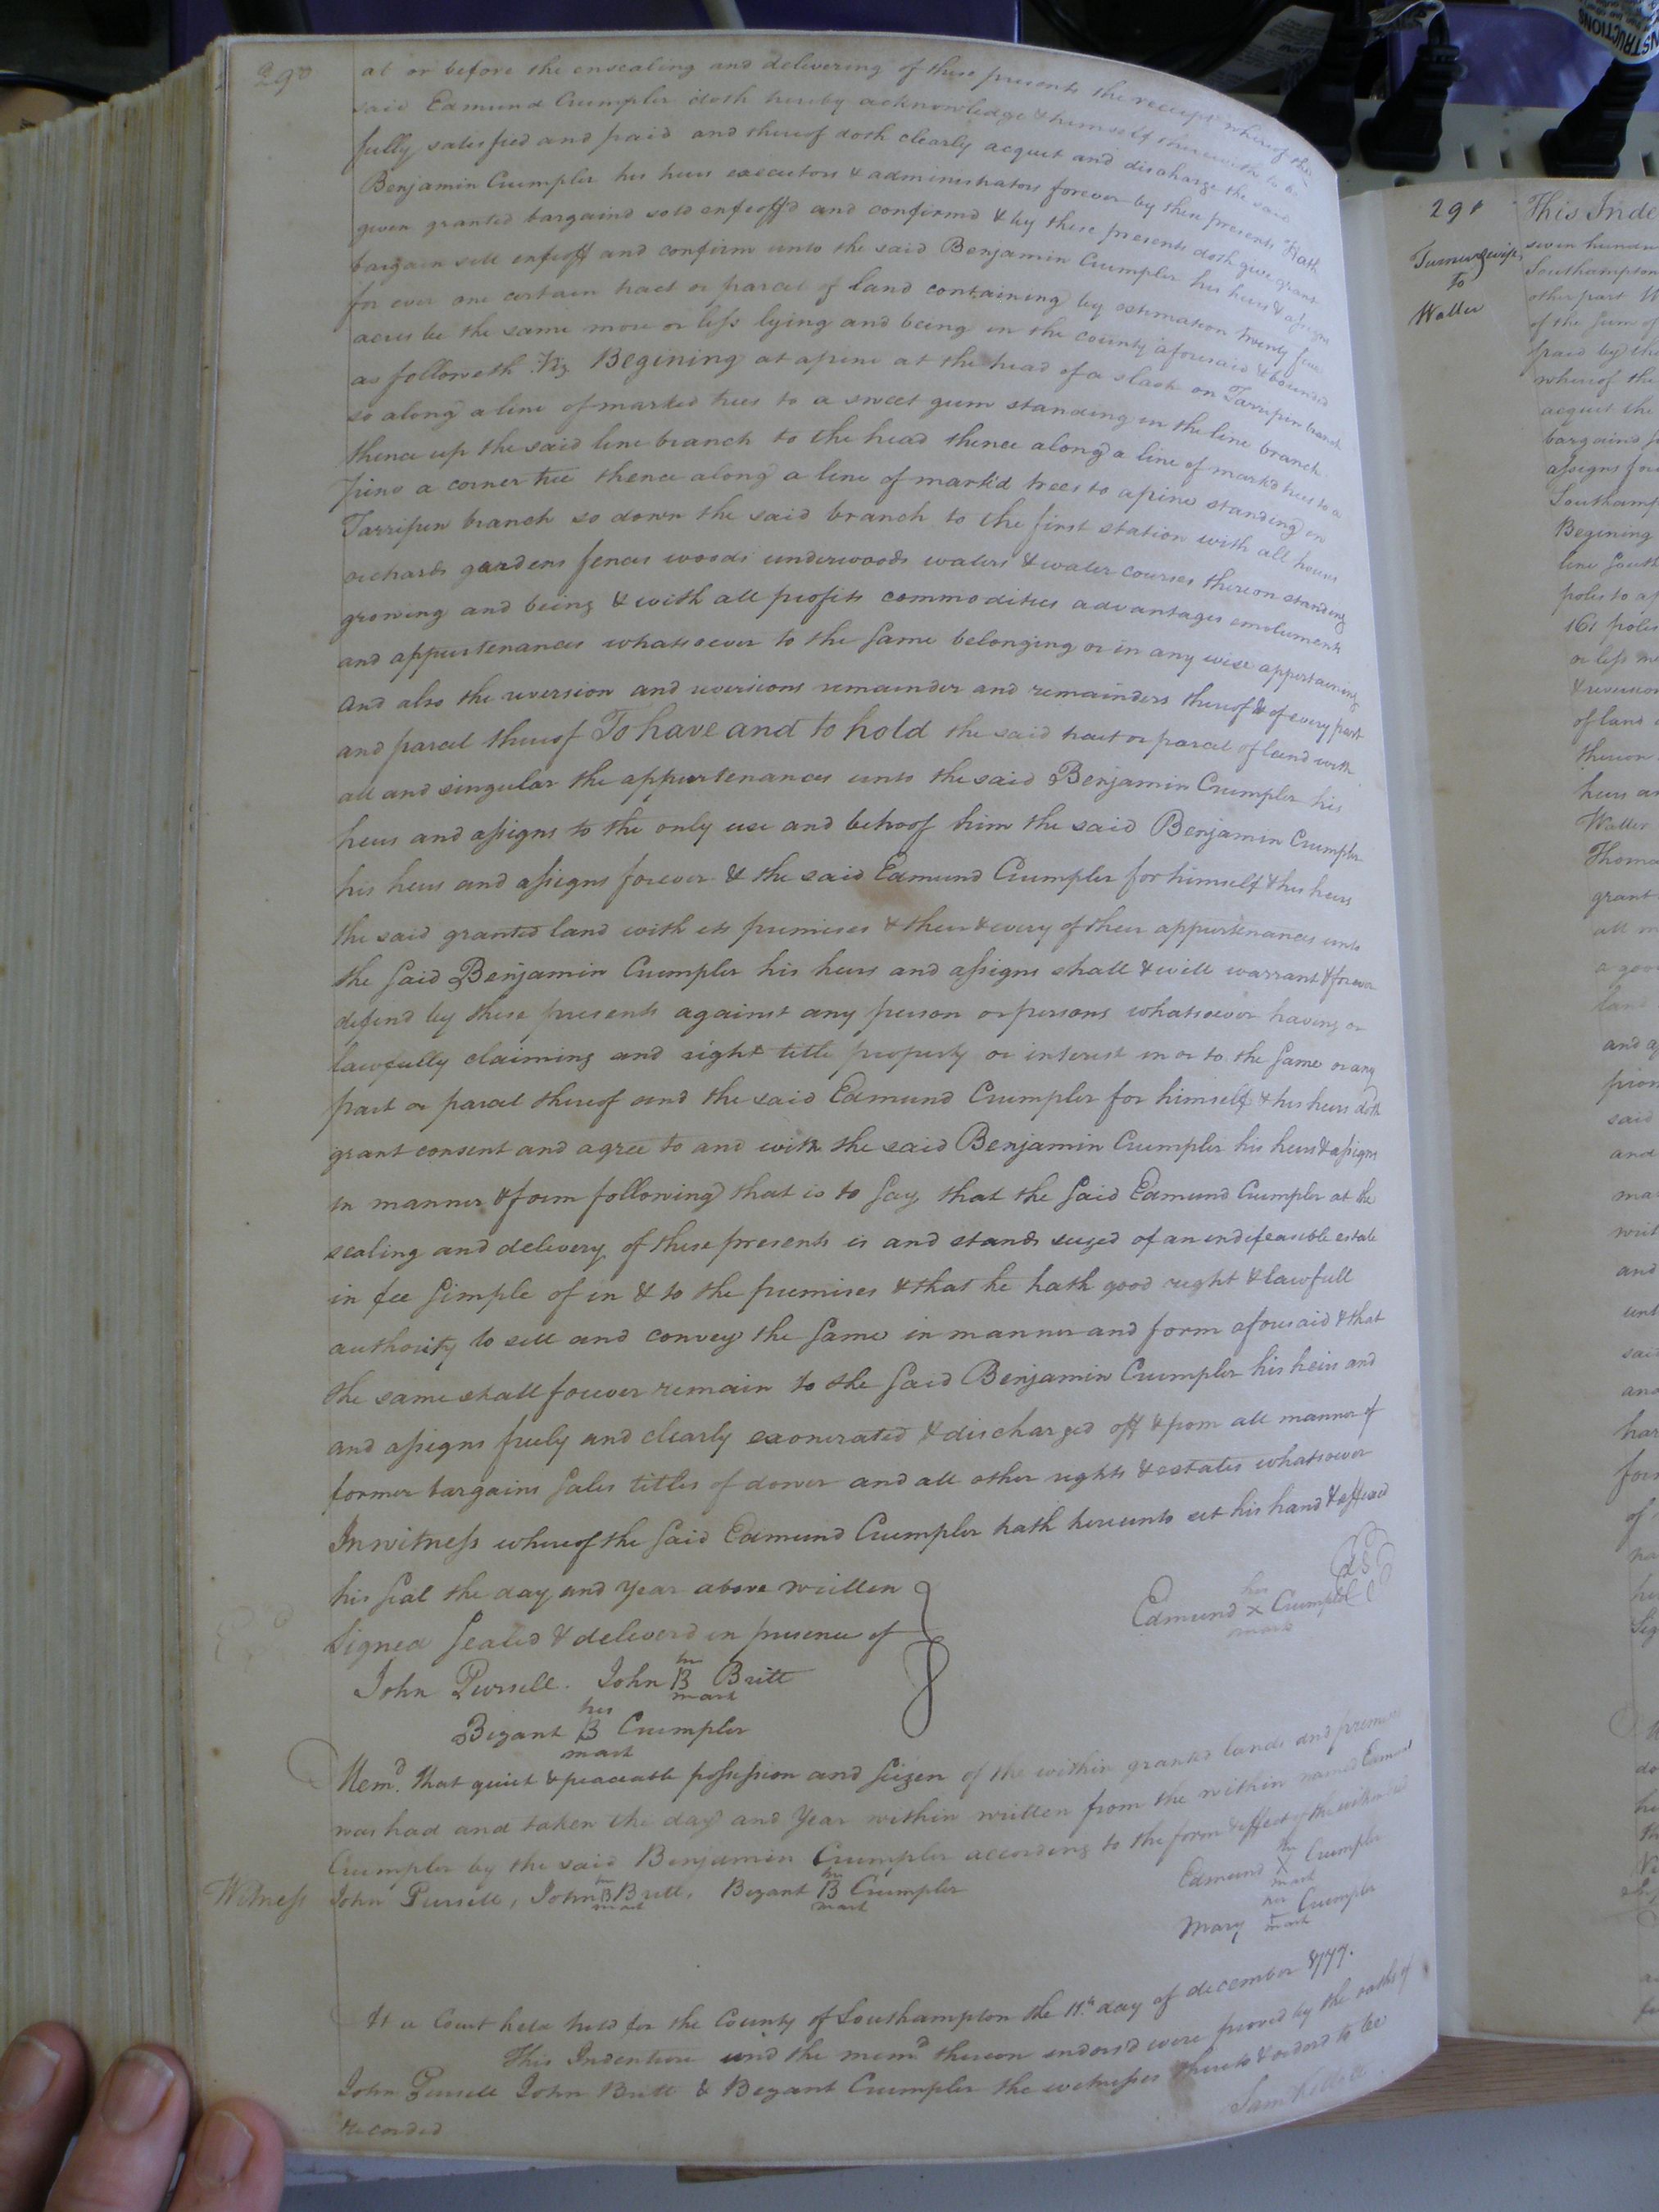 290
at or before the ensealing and delivering of these presents the receipt whereof the
said Edmund Crumpler doth hereby acknowledge & himself therewith to be
fully satisfied and paid and thereof doth clearly acquet and discharge the said
Benjamin Crumpler his heirs executors & administrators forever by these presents Hath
given granted bargaind sold enfeoff'd and confirmd & by these presents doth give grant
bargain sell enfeoff and confirm unto the said Benjamin Crumpler his heirs & assigns
for ever one certain tract or parcel of land containing by estimation twenty five
acres be the same more or less lying and being in the county aforesaid & bounded
as followeth Viz Begining at a pine at the head of a slash on Tarripen branch
so along a line of marked trees to a sweet gum standing in the line branch
thence up the said line branch to the head thence along a line of markd trees to a
pine a corner tree thence along a line of mark'd trees to a pine standing on
Tarripen branch so down the said branch to the first station with all houses
orchards gardens fences woods underwoods waters & water courses thereon standing
growing and being & with all profits commodities advantages emoluments
and appurtenances whatsoever to the same belonging or in any wise appertaining
and also the reversion and reversions remainder and remainders thereof & of every part
and parcel thereof To have and to hold the said tract or parcel of land with
all and singular the appurtenances unto the said Benjamin Crumpler his
heirs and assigns to the only use and behoof him the said Benjamin Crumpler
his heirs and assigns forever & the said Edmund Crumpler for himself & his heirs
the said granted land with its premises & their & every of their appurtenances unto
the said Benjamin Crumpler his heirs and assigns shall & will warrant & forever
defend by these presents against any person or persons whatsoever having or
lawfully claiming and right title property or interest in or to the same or any
part or parcel thereof and the said Edmund Crumpler for himself & his heirs doth
grant consent and agree to and with the said Benjamin Crumpler his heirs & assigns
in manner & form following that is to say that the said Edmund Crumpler at the
sealing and delivery of these presents is and stands seized of an indefeasible estate
in fee simple of in & to the premises & that he hath good right & lawfull
authority to sell and convey the same in manner and form aforesaid & that
the same shall forever remain to the said Benjamin Crumpler his heirs and
and assigns freely and clearly exonerated & discharged off & from all manner of
former bargains sales titles of dower and all other rights & estates whatsoever
In witness whereof the said Edmund Crumpler hath hereunto set his hand & affixed
his seal the day and year above written
Signed Sealed & deliverd in presence of
his
Edmund x Crumpler
mark
John Pursell. John B Britt
his
mark
his
Bizant B Crumpler
mark
Memd. that quiet & peaceable possession and seizen of the within granted lands and premises
was had and taken the day and year within written from the within named Edmund
Crumpler by the said Benjamin Crumpler according to the form & effect of the within deed
Witness John Pursell, John B Britt, Bizant B Crumpler
his mark
his mark
his
Edmund x Crumpler
mark
her
Mary + Crumpler
mark
At a Court held held for the County of Southampton the 11th day of december 1777.
This Indenture and the memd. thereon endorsd were proved by the oaths of
John Pursell John Britt & Bizant Crumpler the witnesses thereto & ordord to be
recorded
Sam Kello
291
Turner & wife
to
Waller
This Inde
seven hundre
Southampton
other part W
of the sum of
paid by the
whereof the
acquit the
bargaind
assigns for
Southamp
Begining
line South
poles to a
161 poles
or less
of land
thereon
heirs an
Waller
Thoma
grant
all
a good
land
and
said
and